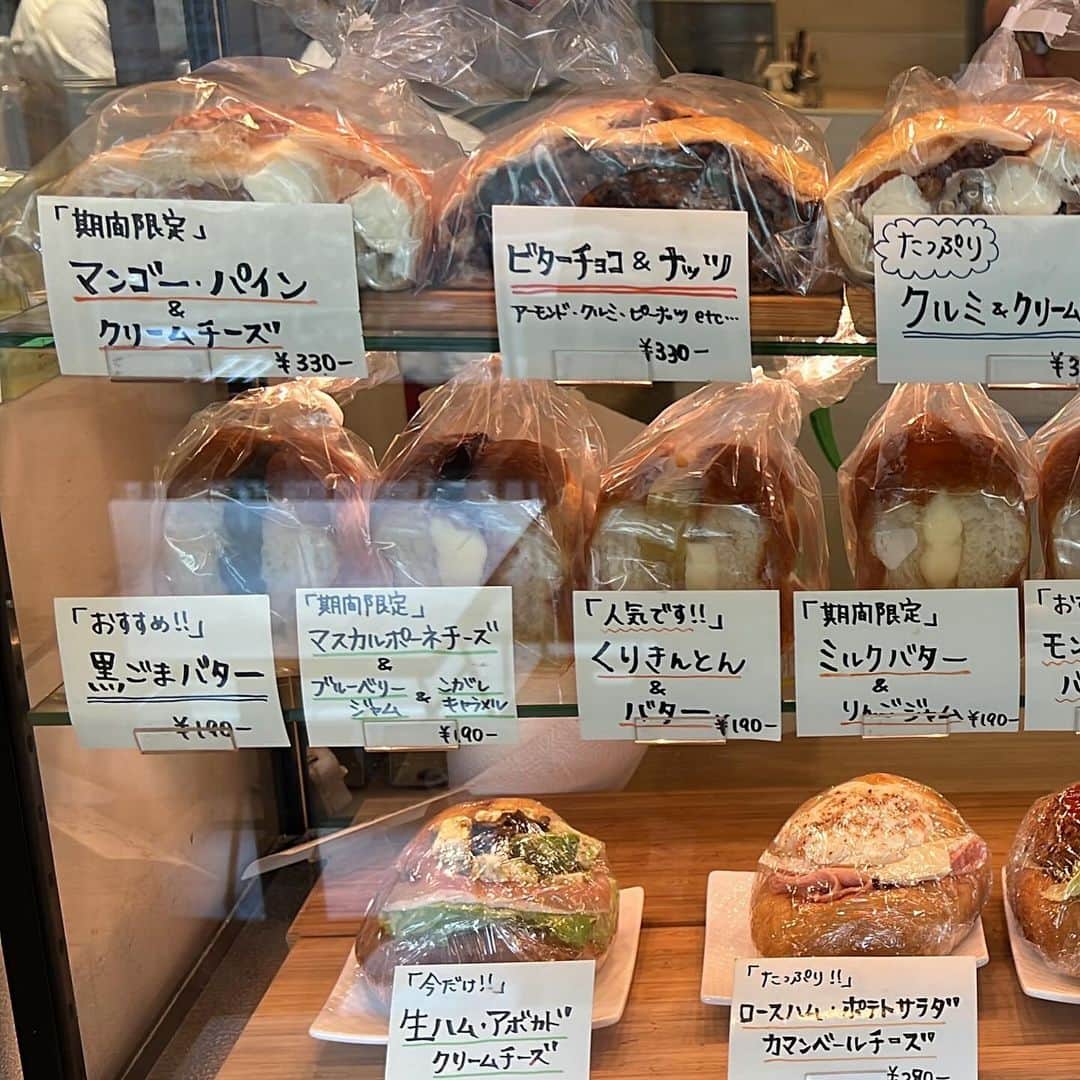 「期間限定」
マンゴー・パイン
&
クリームチーズ
¥330-
ビターチョコ&ナッツ
アーモンド・クルミ・ピーナッツ etc…
¥330-
たっぷり
クルミ&クリーム
¥3
「おすすめ!!」
黒ごまバター
¥190-
「期間限定」
マスカルポーネチーズ
&
ブルーベリージャム & こがしキャラメル
¥190-
「人気です!!」
くりきんとん
&
バター
¥190-
「期間限定」
ミルクバター
&
りんごジャム
¥190-
「おす
モン
バ
「今だけ!!」
生ハム・アボカド
クリームチーズ
「たっぷり!!」
ロースハム・ポテトサラダ
カマンベールチーズ